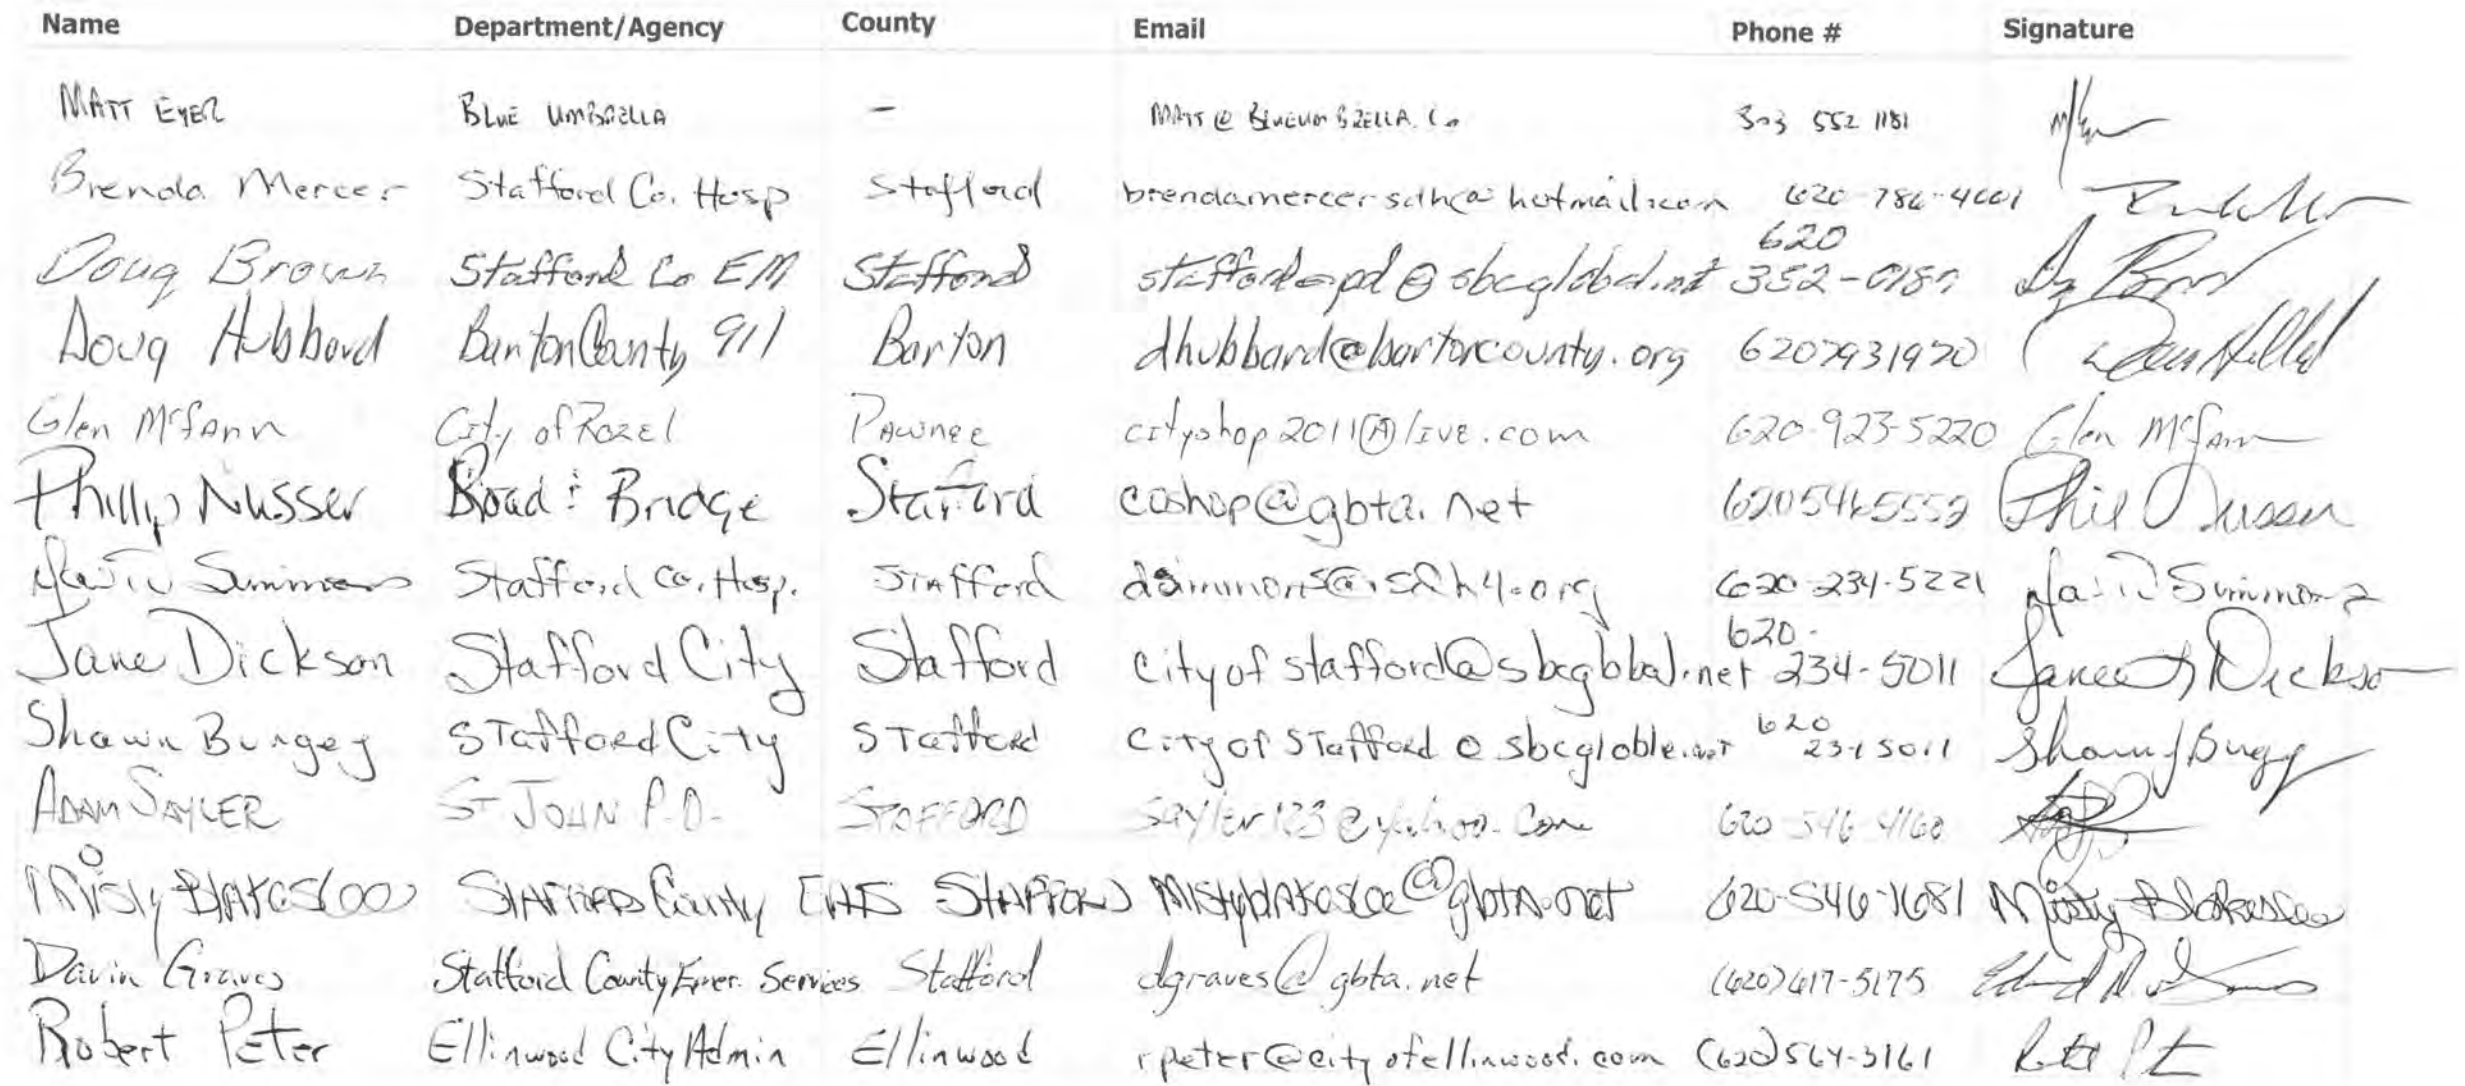 Name Department/Agency County Email Phone # Signature
MATT EYER BLUE UMBRELLA - MATT@BLUEUMBRELLA.CO 303 552 1181
Brenda Mercer Stafford Co. Hosp Stafford brendamercersdh@hotmail.com 620-786-4001
620
Doug Brown Stafford Co EM Stafford @sbcglobal.net
Doug Hubbard Barton County 911 Barton dhubbard@bartoncounty.org 6207931920
Glen McFann City of Rozel Pawnee cityshop2011@live.com 620-923-5220 Glen McFann
Phillip Nusser Road & Bridge Stafford coshop@gbta.net 6205465552 Phil Nusser
Simmons Stafford Co. Hosp. Stafford 620-234-5221 Simmons
620-
Jane Dickson Stafford City Stafford cityofstafford@sbcglobal.net 234-5011 Dickson
620
Shawn Burgey Stafford City Stafford cityofstafford@sbcgloble.net 234 5011
ADAM SAYLER ST JOHN P.D. STAFFORD sayler123@yahoo.com 620-546-4160
Misty Blakeslee Stafford County EMS Stafford mistyblakeslee@gbta.net 620-546-1681 Misty Blakeslee
Davin Graves Stafford County Emer. Services Stafford dgraves@gbta.net (620)617-5175
Robert Peter Ellinwood City Admin Ellinwood rpeter@cityofellinwood.com (620)564-3161